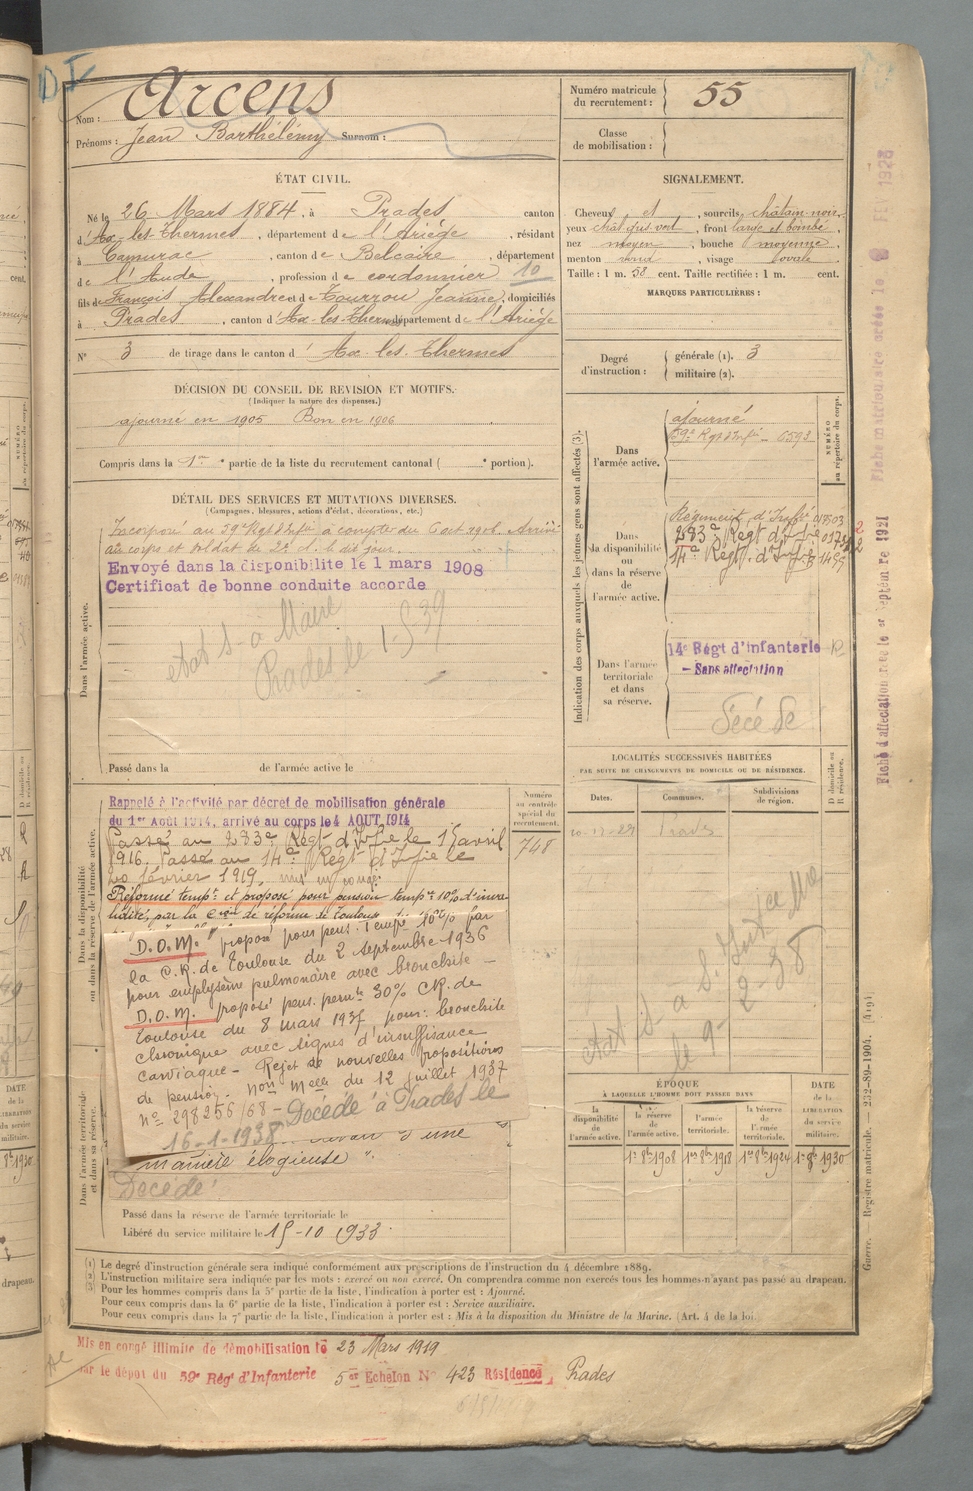 Nom : Arcens
Prénoms : Jean Barthélémy Surnom :
Numéro matricule du recrutement : 55
Classe de mobilisation :
ÉTAT CIVIL.
Né le 26 Mars 1884, à Prades canton
d'Ax-les-Thermes, département de l'Ariège, résidant
à Camurac, canton de Belcaire, département
de l'Aude, profession de cordonnier 10
fils de François Alexandre et de Tourrou Jeanne, domiciliés
à Prades, canton d'Ax-les-Thermes département de l'Ariège
N° 3 de tirage dans le canton d'Ax-les-Thermes
SIGNALEMENT.
Cheveux et , sourcils châtain-noir
yeux chât gris vert, front large et bombé
nez moyen, bouche moyenne,
menton rond, visage ovale
Taille : 1 m. 58 cent. Taille rectifiée : 1 m. cent.
MARQUES PARTICULIÈRES :
Degré d'instruction : générale (1). 3
militaire (2).
DÉCISION DU CONSEIL DE REVISION ET MOTIFS.
(Indiquer la nature des dispenses.)
ajourné en 1905 Bon en 1906
Compris dans la 1re partie de la liste du recrutement cantonal ( e portion).
DÉTAIL DES SERVICES ET MUTATIONS DIVERSES.
(Campagnes, blessures, actions d'éclat, décorations, etc.)
Dans l'armée active.
Incorporé au 59e Régt d'Infie à compter du 6 oct 1906. Arrivé
au corps et soldat de 2e cl. le dit jour.
Envoyé dans la disponibilité le 1 mars 1908
Certificat de bonne conduite accordé
état S- à Maire
Prades le 1-5-39
Passé dans la de l'armée active le
Indication des corps auxquels les jeunes gens sont affectés (3).
NUMÉRO au répertoire du corps.
Dans l'armée active.
ajourné
59e Régt d'Infie 0593
Dans la disponibilité ou dans la réserve de l'armée active.
Régiment d'Infie
283e Régt d'Infie
14e Régt d'Infie
Dans l'armée territoriale et dans sa réserve.
14e Régt d'Infanterie
- Sans affectation
Décédé
LOCALITÉS SUCCESSIVES HABITÉES
PAR SUITE DE CHANGEMENTS DE DOMICILE OU DE RÉSIDENCE.
Dates. Communes. Subdivisions de région.
D domicile ou R résidence.
Prades
le 9-2-38
Dans la disponibilité ou dans la réserve de l'armée active.
Numéro au contrôle spécial du recrutement.
748
Rappelé à l'activité par décret de mobilisation générale
du 1er Août 1914, arrivé au corps le 4 AOUT 1914
Passé au 283e Régt d'Infie le 15 avril
1916. Passé au 14e Régt d'Infie le
20 février 1919, mis en congé
Réformé tempre et proposé pour pension tempre 10% d'inva-
lidité, par la Con de réforme de Toulouse
"D.O.M." proposé pour pens. temps 10% par
la C.R. de Toulouse du 2 septembre 1936
pour emphysème pulmonaire avec bronchite –
D.O.M. proposé pens. permte 30% CR. de
Toulouse du 8 mars 1937 pour : bronchite
chronique avec signes d'insuffisance
cardiaque – Rejet de nouvelles propositions
de pension. non Melle du 12 juillet 1937
N° 298256/68 – Décédé à Prades le
16-1-1938
d'une
manière élogieuse".
Décédé
Dans l'armée territoriale et dans sa réserve.
Passé dans la réserve de l'armée territoriale le
Libéré du service militaire le 15-10 1933
ÉPOQUE
À LAQUELLE L'HOMME DOIT PASSER DANS
la disponibilité de l'armée active.
la réserve de l'armée active.
l'armée territoriale.
la réserve de l'armée territoriale.
DATE de la LIBÉRATION du service militaire.
1er 8bre 1908 1er 8bre 1918 1er 8bre 1924 1er 8bre 1930
(1) Le degré d'instruction générale sera indiqué conformément aux prescriptions de l'instruction du 4 décembre 1889.
(2) L'instruction militaire sera indiquée par les mots : exercé ou non exercé. On comprendra comme non exercés tous les hommes n'ayant pas passé au drapeau.
(3) Pour les hommes compris dans la 5e partie de la liste, l'indication à porter est : Ajourné.
Pour ceux compris dans la 6e partie de la liste, l'indication à porter est : Service auxiliaire.
Pour ceux compris dans la 7e partie de la liste, l'indication à porter est : Mis à la disposition du Ministre de la Marine. (Art. 4 de la loi.
Mis en congé illimité de démobilisation le 23 Mars 1919
par le dépôt du 59e Rég' d'Infanterie 5er Echelon N° 423 Résidence Prades
Guerre. Registre matricule. 232-89-1904. [4194]
Fiche matriculaire créée le FEV 1928
Fiche d'affectation créée le 1er Septembre 1921